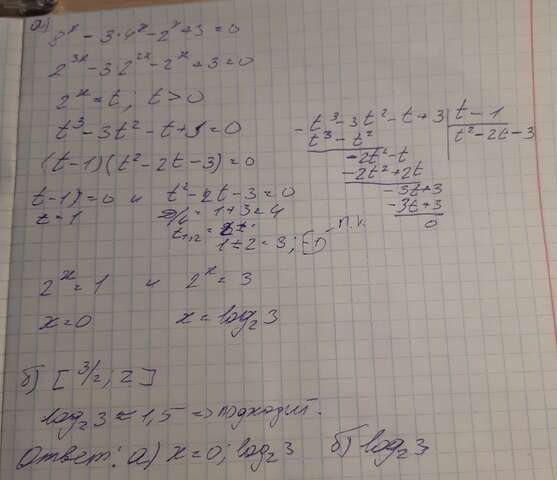 а) 8^x - 3·4^x - 2^x + 3 = 0
2^{3x} - 3·2^{2x} - 2^x + 3 = 0
2^x = t; t > 0
t^3 - 3t^2 - t + 3 = 0
(t-1)(t^2 - 2t - 3) = 0
t-1) = 0 и t^2 - 2t - 3 = 0
t = 1 D/4 = 1+3 = 4
t_{1,2} =
1±2 = 3; -1 П.К
2^x = 1 и 2^x = 3
x = 0 x = log_2 3
t^3 - 3t^2 - t + 3 | t - 1
- t^3 - t^2 | t^2 - 2t - 3
-2t^2 - t
-2t^2 + 2t
-3t + 3
-3t + 3
0
б) [3/2; 2]
log_2 3 ≈ 1,5 => подходит.
Ответ: а) x = 0; log_2 3 б) log_2 3